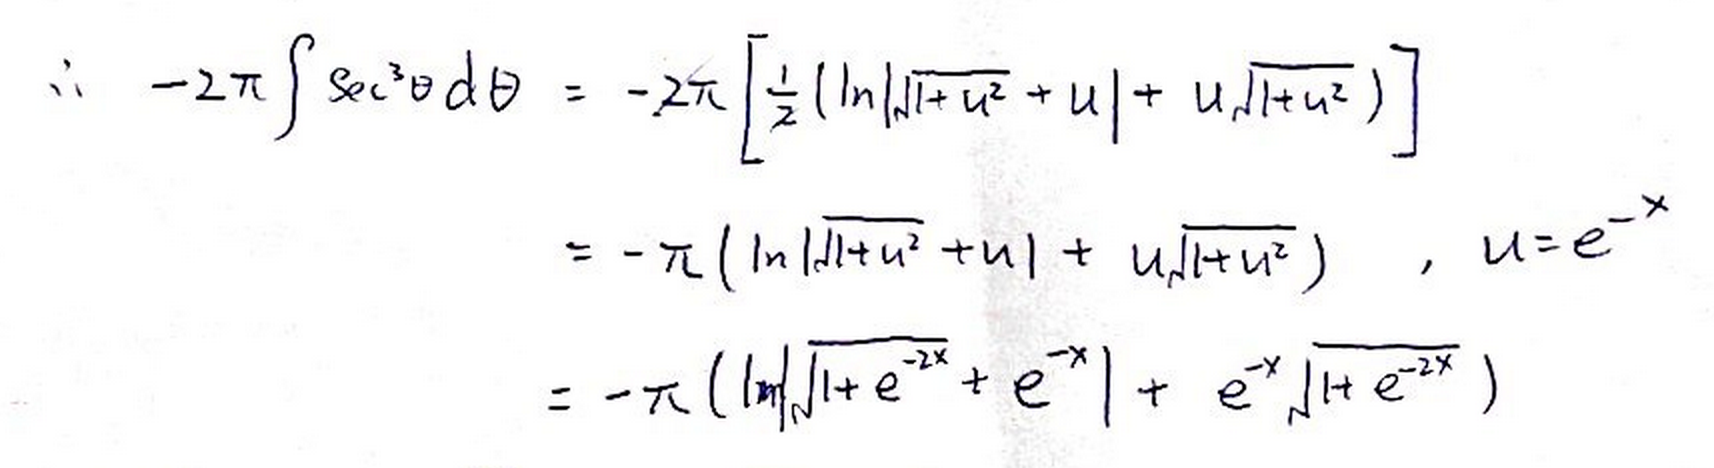 ∴ -2π∫ sec³θ dθ = -2π[½(ln|√(1+u²) + u| + u√(1+u²))]
= -π(ln|√(1+u²) + u| + u√(1+u²)) , u = e^(-x)
= -π(ln|√(1+e^(-2x)) + e^(-x)| + e^(-x)√(1+e^(-2x)))